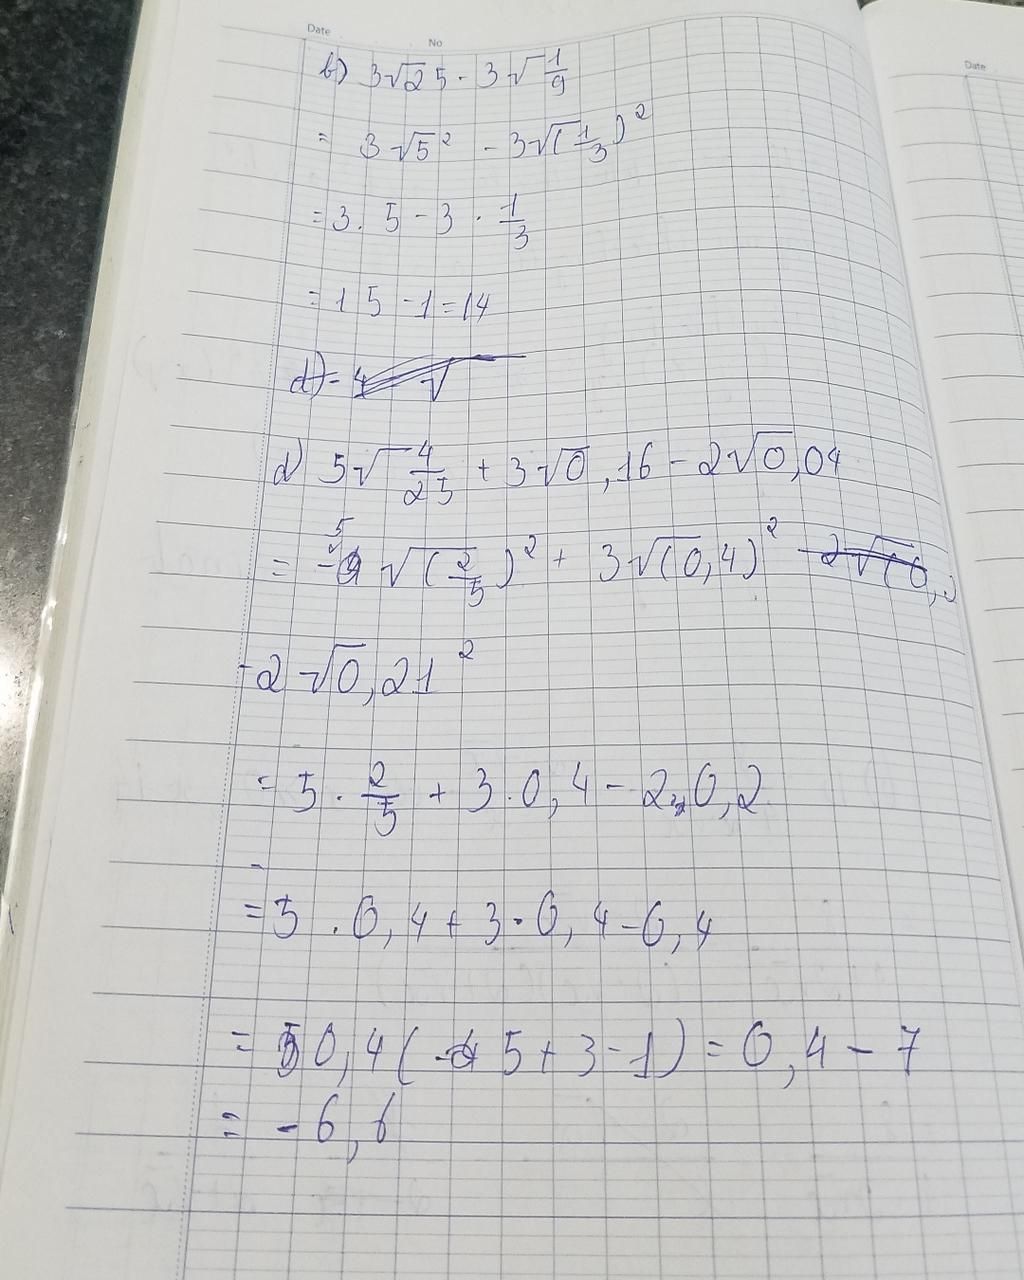 Date No
b) 3√25 - 3√1/9
= 3√5² - 3√(1/3)²
= 3 . 5 - 3 . 1/3
= 15 - 1 = 14
d) 5√4/25 + 3√0,16 - 2√0,04
= 5√(2/5)² + 3√(0,4)²
- 2√0,21²
= 5 . 2/5 + 3 . 0,4 - 2 . 0,2
= 5 . 0,4 + 3 . 0,4 - 0,4
= 0,4 ( 5 + 3 - 1) = 0,4 - 7
= - 6,6
Date